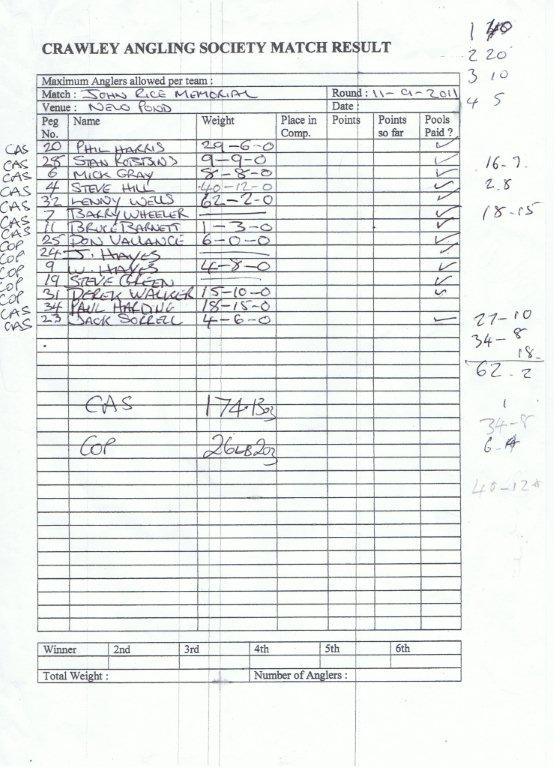 1 40
CRAWLEY ANGLING SOCIETY MATCH RESULT
2 20
3 10
Maximum Anglers allowed per team :
Match : JOHN RICE MEMORIAL Round : 11-9-2011
4 5
Venue : NEW POND Date :
Peg No. Name Weight Place in Comp. Points Points so far Pools Paid ?
CAS 20 PHIL HARRIS 29-6-0 ✓
CAS 28 STAN ROBBINS 9-9-0 ✓ 16-7
CAS 6 MICK GRAY 8-8-0 ✓
CAS 4 STEVE HILL 40-12-0 ✓ 2.8
CAS 32 LENNY WELLS 62-2-0 ✓
CAS 7 BARRY WHEELER ✓ 18-15
CAS 11 BRUCE BARNETT 1-3-0 ✓
COP 25 DON VALLANCE 6-0-0 ✓
COP 24 J. HAYES ✓
COP 9 W. HAYES 4-8-0 ✓
COP 19 STEVE GREEN ✓
COP 31 DEREK WALKER 15-10-0 ✓
CAS 34 PAUL HARDING 18-15-0
CAS 23 JACK SORRELL 4-6-0 ✓ 27-10
34-8
18.
62.2
CAS 174.13oz
1
34-8
COP 26LB2oz
6-4
40-12
Winner 2nd 3rd 4th 5th 6th
Total Weight : Number of Anglers :